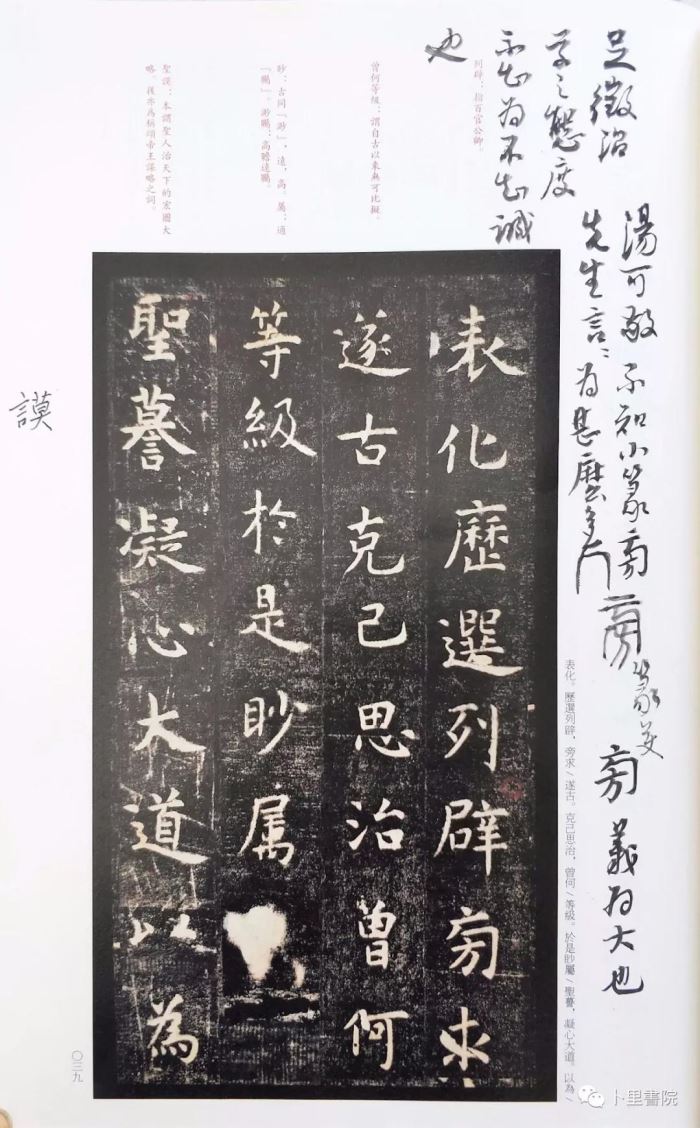 湯可敬 不知小篆旁
先生言:為甚麼多冂
旁 篆爻
旁義為大也
足徵治
學之態度
不知為不知誠
也
列辟:指百官公卿。
曾何等級:謂自古以來無可比擬。
眇:古同「渺」,遠,高。屬:通
「矚」。渺矚:高瞻遠矚。
聖謨:本謂聖人治天下的宏圖大
略,後亦為稱頌帝王謀略之詞。
表化歷選列辟旁求
遂古克己思治曾何
等級於是眇属
聖謩凝心大道以為
謨
表化。歷選列辟,旁求\遂古。克己思治,曾何\等級。於是眇屬\聖謩,凝心大道。以為\
〇三九
卜里書院